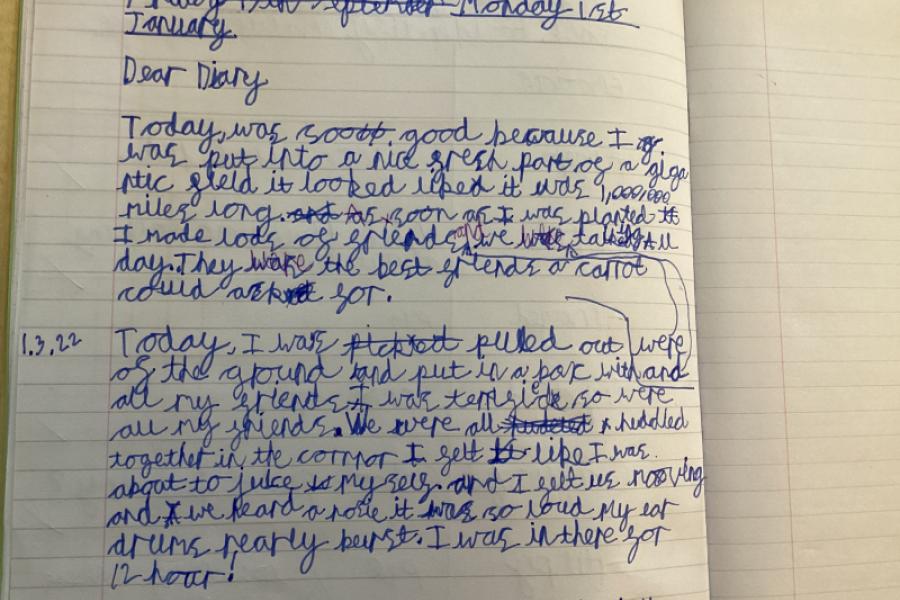 Friday 15th September Monday 1st
January
Dear Diary
Today, was soooo good because I
was put into a nice fresh part of a giga
ntic field it looked like it was 1,000,000
miles long. and As soon as I was planted it
I made lods of friends and we talking All
day. They were the best friends a carrot
could ask for.
1.3.22 Today, I was pulled out were
of the ground and put in a box with and
all my friends I was terrified so were
all my friends. We were all huddled
together in the cornor I felt like I was
about to juice my self. and I felt us mooving
and we heard a noise it was so loud my ear
drums nearly burst. I was in there for
12 hour!